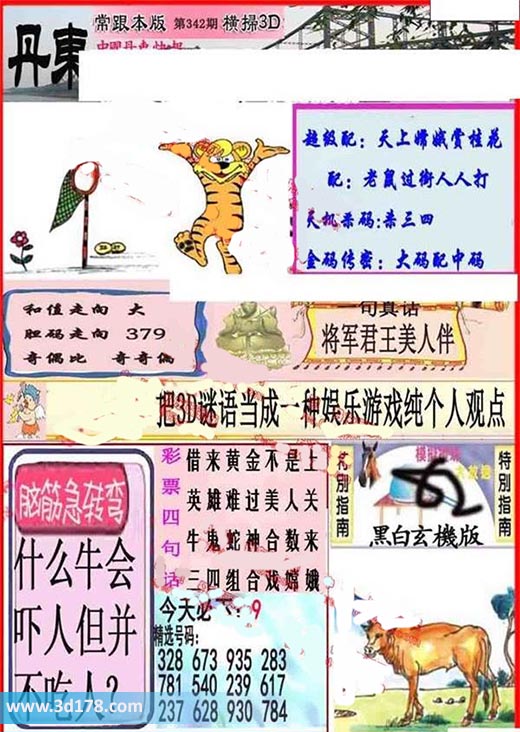 丹東
常跟本版 第342期 横掃3D
超级配：天上嫦娥赏桂花
配：老鼠过街人人打
天机杀码:杀三四
金码传密：大码配中码
和值走向 大
胆码走向 379
奇偶比 奇奇偶
一句真话
将军君王美人伴
把3D谜语当成一种娱乐游戏纯个人观点
脑筋急转弯
什么牛会
吓人但并
不吃人？
彩票四句话
借来黄金不是上
英雄难过美人关
牛鬼蛇神合数来
三四组合戏嫦娥
今天必
9
精选号码:
328 673 935 283
781 540 239 617
237 628 930 784
特别指南
黑白玄機版
特别指南
www.3d178.com